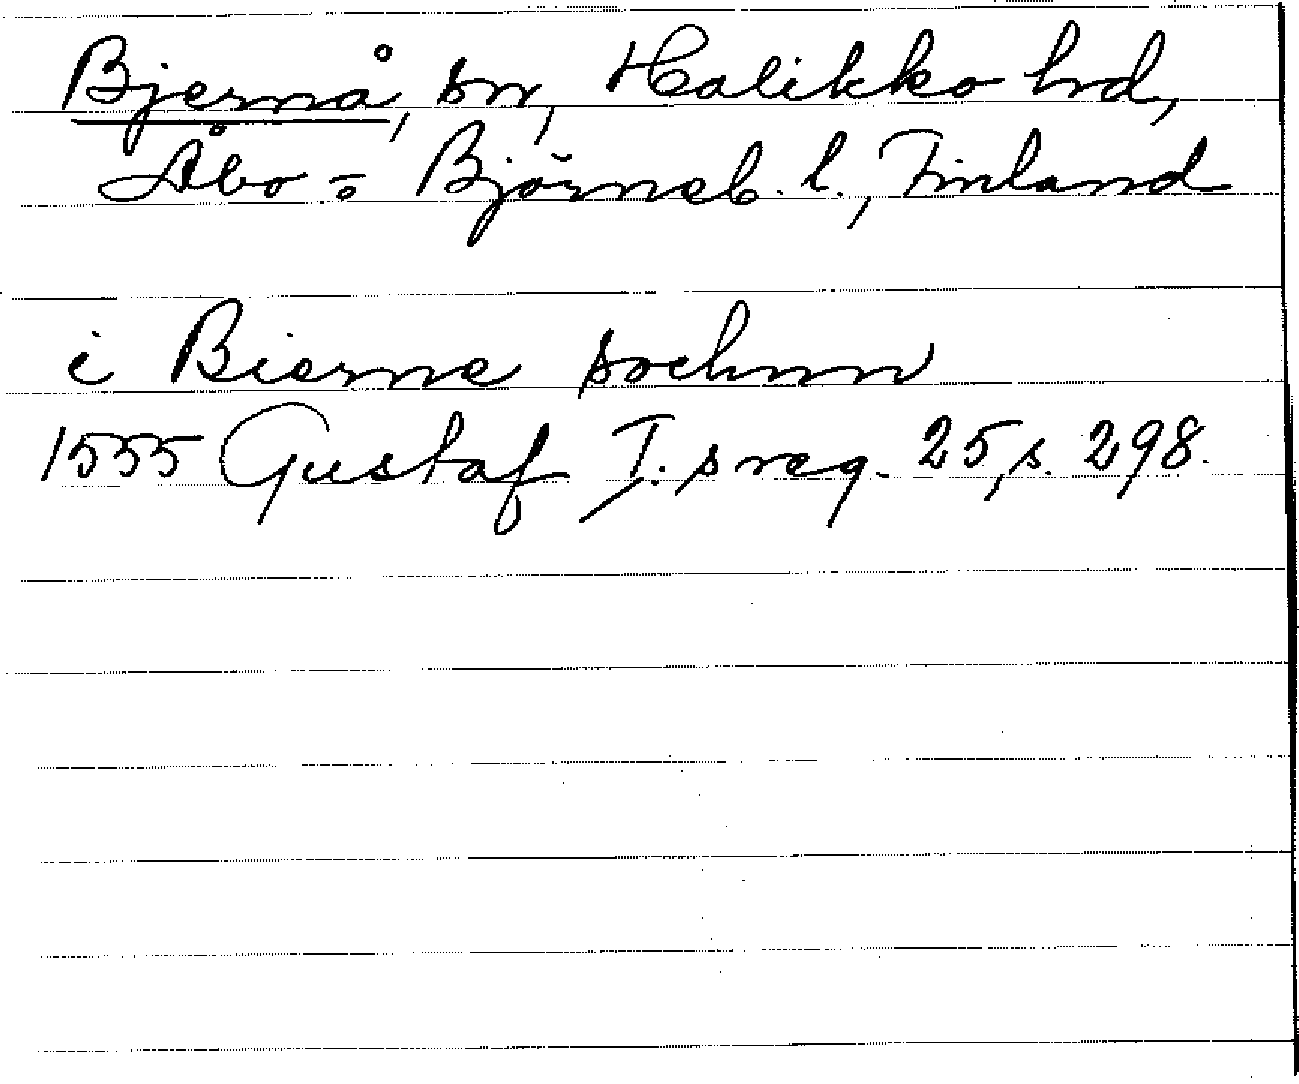 Bjernå, sn, Halikko hd,
Åbo- o Björneb. l., Finland
i Bierne sochnn
1555 Gustaf I:s reg. 25, s. 298.